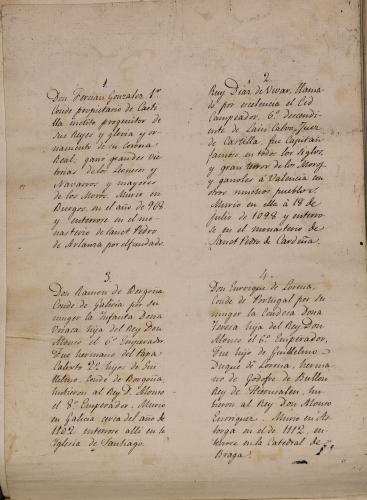 1.
Don Fernan Gonzalez 1.º
Conde propietario de Casti
lla inclito progenitor de
sus Reyes y gloria y or
namento de su Corona
Real, gano grandes vic
torias de los Leoneses y
Navarros y mayores
de los Moros. Murio en
Burgos en el año de 968
y enterrose en el mo
nasterio de Sanct Pedro
de Arlanza por el fundado.
2.
Ruy Diaz de Vivar, llama
do por excelencia el Cid
Campeador, 6.º descendi
ente de Lain Calvo, Juez
de Castilla, fue Capitan
famoso en todos los siglos,
y gran terror de los Moros
y ganoles á Valencia con
otros muchos pueblos.
Murio en ella á 18 de
Julio de 1098 y enterro
se en el monasterio de
Sanct Pedro de Cardeña.
3.
Don Ramon de Borgona
Conde de Galicia por su
muger la Infanta dona
Urraca hija del Rey Don
Alonso el 6.º Emperador
Fue hermano del Papa
Calixto 2.º hijos de Gui
llelmo, Conde de Borgoña,
tuvieron al Rey D. Alonso
el 8.º Emperador. Murio
en Galicia cerca del año de
1102 enterrose alli en la
Iglesia de Santiago.
4.
Don Enrrique de Lorena,
Conde de Portugal por su
muger la Condesa Dona
Teresa hija del Rey Don
Alonso el 6.º Emperador,
Fue hijo de Guillelmo
Duque de Lorena, herma
no de Godofre de Bullon
Rey de Hierusalen, tu
vieron al Rey Don Alonso
Enrriquez. Murio en As
torga en el de 1112, en
terrose en la Catedral de
Braga.